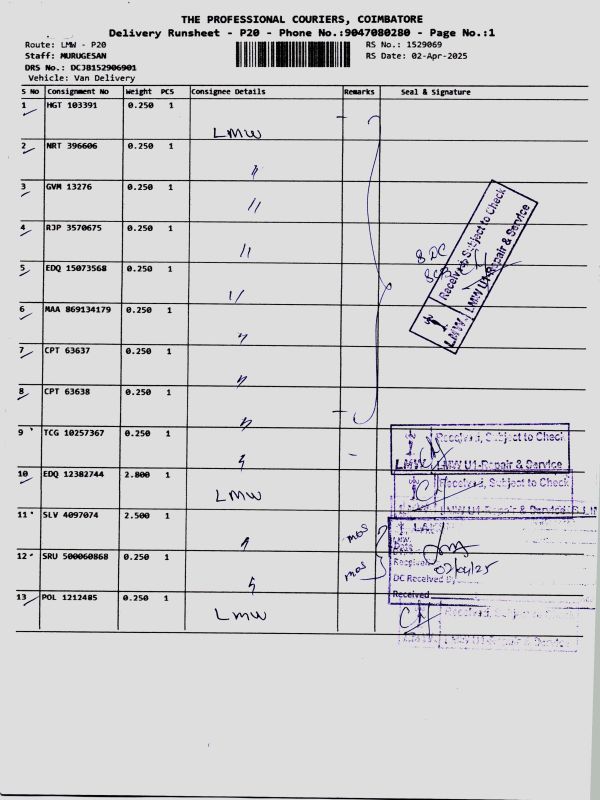 THE PROFESSIONAL COURIERS, COIMBATORE
Delivery Runsheet - P20 - Phone No.:9047080280 - Page No.:1
Route: LMW - P20
RS No.: 1529069
Staff: MURUGESAN
RS Date: 02-Apr-2025
DRS No.: DCJB152906901
Vehicle: Van Delivery
S No Consignment No Weight PCS Consignee Details Remarks Seal & Signature
1 HGT 103391 0.250 1
LMW
2 NRT 396606 0.250 1
"
3 GVM 13276 0.250 1
"
4 RJP 3570675 0.250 1
"
5 EDQ 15073568 0.250 1
"
6 MAA 869134179 0.250 1
"
7 CPT 63637 0.250 1
"
8 CPT 63638 0.250 1
"
Received, Subject to Check
LMW U1-Repair & Service
LMW
9 TCG 10257367 0.250 1
"
Received, Subject to Check
LMW U1-Repair & Service
10 EDQ 12382744 2.800 1
LMW
Received, Subject to Check
LMW U1-Repair & Service
11 SLV 4097074 2.500 1
"
12 SRU 500060868 0.250 1
"
02/04/25
DC Received
Received
13 POL 1212485 0.250 1
LMW
Received, Subject to Check
LMW U1-Repair & Service